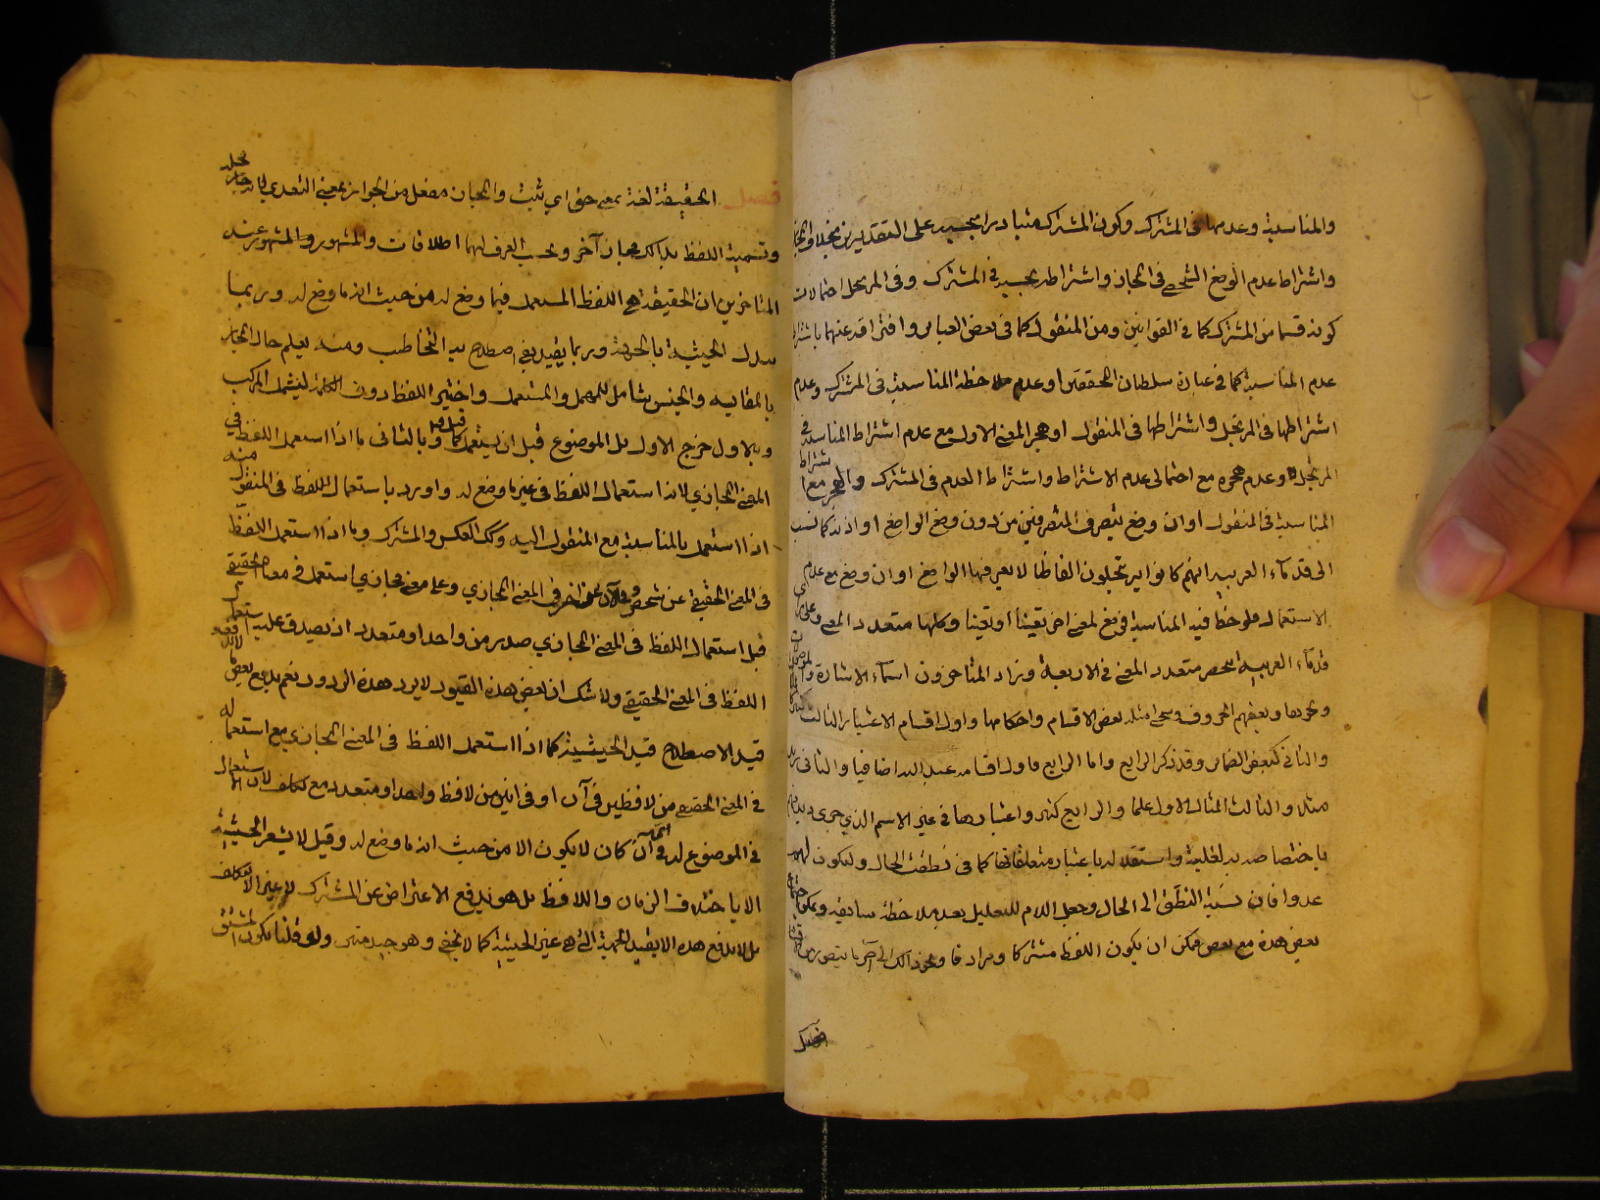 والمناسبة وعدمها في المشترك وكون المشترك متبادرا بجميعه على التقديرين بخلاف المجاز
واشتراط عدم الوضع الشخصي في المجاز واشتراطه بجميعه في المشترك وفي المرتجل احتمالات
كونه قسما من المشترك كما في القوانين ومن المنقول كما في بعض العباير وافتراقه عنهما باشتراط
عدم المناسبة كما في عبارة سلطان المحققين او عدم ملاحظة المناسبة في المشترك وعدم
اشتراطها في المرتجل واشتراطها في المنقول او هجر المعنى الاول مع عدم اشتراط المناسبة في
المرتجل وعدم هجره مع احتمالي عدم الاشتراط واشتراط العدم في المشترك والهجر مع اشتراط
المناسبة في المنقول او ان وضع بتصرف المتصرفين من دون وضع الواضع او اذ ذكر كما نسب
الى قدماء العربيه انهم كانوا يرتجلون الفاظا لا يعرفها الواضع او ان وضع مع عدم
الاستعمال ملوحظ فيه المناسبة فوضع لمعنى اخر تعيينا او تعينا وكلها متعدد المعنى وعلى راي
قدماء العربية ينحصر متعدد المعنى في الاربعة وزاد المتاخرون اسماء الاشارة والموصولات
ونحوها وبعضهم الحروف وسيجئ امثلة بعض الاقسام واحكامها واول اقسام الاعتبار الثالث
والثاني كبعض الضماير وقد ذكر الرابع واما الرابع فاول اقسامه عبد الله اضافيا والثاني
مثله والثالث المثال الاول علما والرابع كثير واعتبارها في غير الاسم الذي جرى
باختصاصه به لغلبته واستقلاله باعتبار متعلقاتها كما في نطقت الحال وليكون لهم
عدوا فان نسبة النطق الى الحال وجعل اللام للتعليل بعد ملاحظة سابقه ويمكن اجتماع
بعض هذه مع بعض فيمكن ان يكون اللفظ مشتركا ومرادفا ونحو ذلك الى آخر ما يتصور من
فصل
فصل الحقيقة لغة بمعنى حق اي ثبت والمجاز مفعل من الجواز بمعنى التعدي لانه
وتسمية اللفظ بذلك مجاز آخر وبحسب العرف لهما اطلاقات والمشهور والمشهور عند
المتاخرين ان الحقيقة هي اللفظ المستعمل فيما وضع له من حيث انه ما وضع له وربما
يبدل الحيثية بالجهة وربما يقيد بفي اصطلاح به التخاطب ومنه يعلم حال المجاز
بالمقايسه والجنس شامل للمهمل والمستعمل واختير اللفظ دون الكلمة ليشمل المركب
وبالاول خرج الاول بل الموضوع قبل ان يستعمل كما قيل وبالثاني ما اذا استعمل اللفظ في
المعنى المجازي لانه استعمال اللفظ في غير ما وضع له واورد باستعمال اللفظ في المنقول منه
اذا استعمل بالمناسبة مع المنقول اليه وكذا العكس والمشترك وما اذا استعمل اللفظ
في المعنى الحقيقي عن شخص وفي آن عن اخر في المعنى المجازي وعلى معنى مجازي استعمل في معناه الحقيقي
قبل استعمال اللفظ في المعنى المجازي صدر من واحد او متعدد اذ يصدق عليه استعمال
اللفظ في المعنى الحقيقي ولا شك ان بعض هذه القيود لا يرد هذه الردود نعم يدفع بعضها
قيد الاصطلاح قيد الحيثية كما اذا استعمل اللفظ في المعنى المجازي مع استعماله
في المعنى الحقيقي من لافظين في آن او في انين من لافظ واحد او متعدد مع تكلف لان استعمال
في الموضوع له في آن كان لا يكون الا من حيث انه ما وضع له وقيل لا يشعر الحيثية
الا باختلاف الزمان واللافظ بل هو يدفع الاعتراض عن المشترك لا غير الا بتكلف
بل لا يدفع هذه الا بقيد الجهة التي هي غير الحيثية كما لا يخفى وهو جيد متين ولو قلنا بكون المشتق